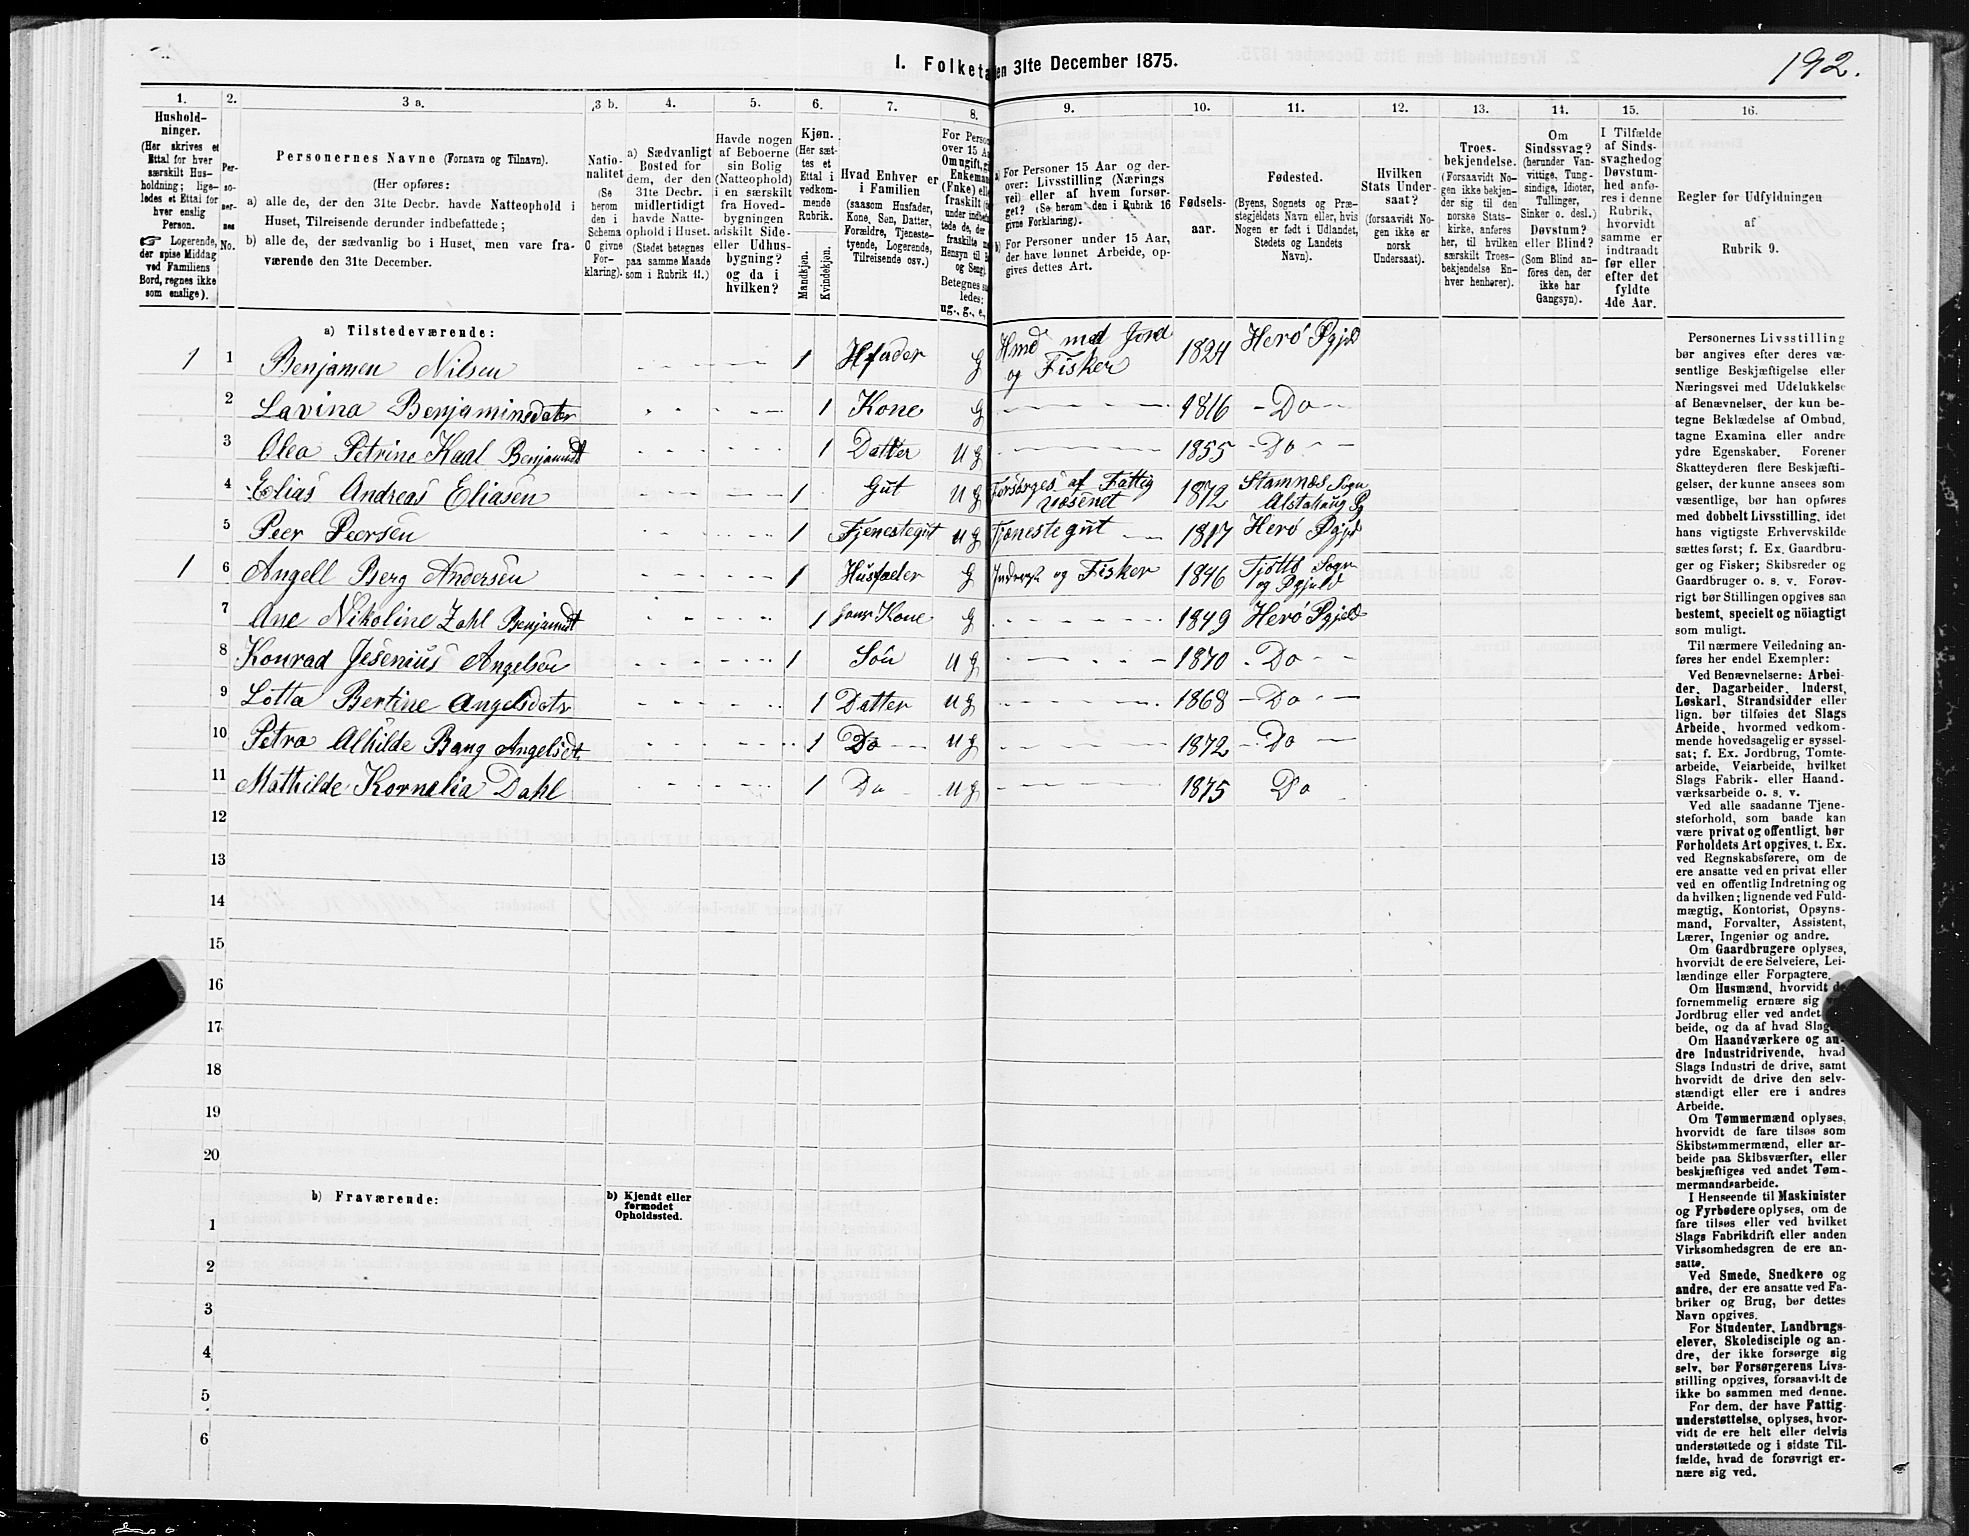 I. Folketa en 31te December 1875.
192.
1.
Hushold-
ninger.
(Her skrives et
Ettal for hver
særskilt Hus-
holdning; lige-
ledes et Ettal for
hver enslig
Person.
☞ Logerende,
der spise Middag
ved Familiens
Bord, regnes ikke
som enslige).
2.
Per-
so-
ner-
nes
No.
3 a.
Personernes Navne (Fornavn og Tilnavn).
(Her opføres:
a) alle de, der den 31te Decbr. havde Natteophold i
Huset, Tilreisende derunder indbefattede;
b) alle de, der sædvanlig bo i Huset, men vare fra-
værende den 31te December.
3 b.
Natio-
nalitet
(Se
herom
den i
Schema
C givne
For-
klaring).
4.
a) Sædvanligt
Bosted for
dem, der den
31te Decbr.
midlertidigt
havde Natte-
ophold i Huset.
(Stedet betegnes
paa samme Maade
som i Rubrik 11.)
5.
Havde nogen
af Beboerne
sin Bolig
(Natteophold)
i en særskilt
fra Hoved-
bygningen
adskilt Side-
eller Udhus-
bygning?
og da i
hvilken?
6.
Kjøn.
(Her sæt-
tes et
Ettal i
vedkom-
mende
Rubrik.
Mandkjøn.
Kvindekjøn.
7.
Hvad Enhver er
i Familien
(saasom Husfader,
Kone, Søn, Datter,
Forældre, Tjeneste-
tyende, Logerende,
Tilreisende osv.)
8.
For Person
over 15 A
Om ugift, gi
Enkeman
(Fnke) el
fraskilt
under indbe
tede de, der
fraskilte
Hensyn til B
og Seng.
Betegnes
ledes:
ug., g., e.,
9.
a) For Personer 15 Aar og der-
over: Livsstilling (Nærings
vei) eller af hvem forsør-
get? (Se herom den i Rubrik 16
givne Forklaring).
b) For Personer under 15 Aar,
der have lønnet Arbeide, op-
gives dettes Art.
10.
Fødsels-
aar.
11.
Fødested.
(Byens, Sognets og Præ-
stegjeldets Navn eller, hvis
Nogen er født i Udlandet,
Stedets og Landets
Navn).
12.
Hvilken
Stats Under-
saat?
(forsaavidt No-
gen ikke er
norsk
Undersaat).
13.
Troes-
bekjendelse.
(Forsaavidt No-
gen ikke bekjen-
der sig til den
norske Stats-
kirke, anføres
her, til hvilken
særskilt Troes-
bekjendelse En-
hver henhører).
14.
Om
Sindssvag?
(herunder Van-
vittige, Tung-
sindige, Idioter,
Tullinger,
Sinker o. desl.)
Døvstum?
eller Blind?
(Som Blind an-
føres den, der
ikke har
Gangsyn).
15.
I Tilfælde
af Sinds-
svaghed og
Døvstum-
hed anfø-
res i denne
Rubrik,
hvorvidt
samme er
indtraadt
før eller
efter det
fyldte
4de Aar.
16.
Regler for Udfyldningen
af
Rubrik 9.
a) Tilstedeværende:
1 1 Benjamen Nilsen 1 Hfader g Hmd med Jord og Fisker 1824 Herø Pgjeld
2 Lavina Benjaminsdater 1 Kone g 1816 Do
3 Olea Petrine Kaal Benjamdt 1 Datter ug 1855 Do
4 Elias Andreas Eliasen 1 Gut ug Forsørges af Fattig væsenet 1872 Stamnæs Sogn Alstahaug Pg
5 Peer Peersen 1 Tjenestegut ug Tjenestegut 1817 Herø Pgjd
1 6 Angell Berg Andersen 1 Husfader g Inderst og Fisker 1846 Tjøttø Sogn og Pgjeld
7 Ane Nikoline Zahl Benjamdt 1 hans Kone g 1849 Herø Pgjeld
8 Konrad Jesenius Angelsen 1 Søn ug 1870 Do
9 Lotta Bertine Angelsdatr 1 Datter ug 1868 Do
10 Petra Alhilde Bang Angelsdt 1 Do ug 1872 Do
11 Mathilde Kornelia Dahl 1 Do ug 1875 Do
12
13
14
15
16
17
18
19
20
b) Fraværende:
b) Kjendt eller
formodet
Opholdssted.
1
2
3
4
5
6
Personernes Livsstilling
bør angives efter deres væ-
sentlige Beskjæftigelse eller
Næringsvei med Udelukkelse
af Benævnelser, der kun be-
tegne Beklædelse af Ombud,
tagne Examina eller andre
ydre Egenskaber. Forener
Skatteyderen flere Beskjæfti-
gelser, der kunne ansees som
væsentlige, bør han opføres
med dobbelt Livsstilling, idet
hans vigtigste Erhvervskilde
sættes først; f. Ex. Gaardbru-
ger og Fisker; Skibsreder og
Gaardbruger o. s. v. Forøv-
rigt bør Stillingen opgives saa
bestemt, specielt og nöiagtigt
som muligt.
Til nærmere Veiledning an-
føres her endel Exempler:
Ved Benævnelserne: Arbei-
der, Dagarbeider, Inderst,
Løskarl, Strandsidder eller
lign. bør tilføies det Slags
Arbeide, hvormed vedkom-
mende hovedsagelig er syssel-
sat; f. Ex. Jordbrug, Tomte-
arbeide, Veiarbeide, hvilket
Slags Fabrik- eller Haand-
værksarbeide o. s. v.
Ved alle saadanne Tjene-
steforhold, som baade kan
være privat og offentligt, bør
Forholdets Art opgives, t. Ex.
ved Regnskabsførere, om de
ere ansatte ved en privat eller
ved en offentlig Indretning og
da hvilken; lignende ved Fuld-
mægtig, Kontorist, Opsyns-
mand, Forvalter, Assistent,
Lærer, Ingeniør og andre.
Om Gaardbrugere oplyses,
hvorvidt de ere Selveiere, Lei-
lændinge eller Forpagtere.
Om Husmænd, hvorvidt de
fornemmelig ernære sig
Jordbrug eller ved andet
beide, og da af hvad Slags
Om Haandværkere og an-
dre Industridrivende, hvad
Slags Industri de drive, samt
hvorvidt de drive den selv-
stændigt eller ere i andres
Arbeide.
Om Tømmermænd oplyses,
hvorvidt de fare tilsøs som
Skibstømmermænd, eller ar-
beide paa Skibsværfter, eller
beskjæftiges ved andet Tøm-
mermandsarbeide.
I Henseende til Maskinister
og Fyrbødere oplyses, om de
fare tilsøs eller ved hvilket
Slags Fabrikdrift eller anden
Virksomhedsgren de ere an-
satte.
Ved Smede, Snedkere og
andre, der ere ansatte ved Fa-
briker og Brug, bør dettes
Navn opgives.
For Studenter, Landbrugs-
elever, Skoledisciple og an-
dre, der ikke forsørge sig
selv, bør Forsørgerens Livs-
stilling opgives, forsaavidt de
ikke bo sammen med denne.
For dem, der have Fattig-
understøttelse, oplyses, hvor-
vidt de ere helt eller delvis
understøttede og i sidste Til-
fælde, hvad de forøvrigt er-
nære sig ved.